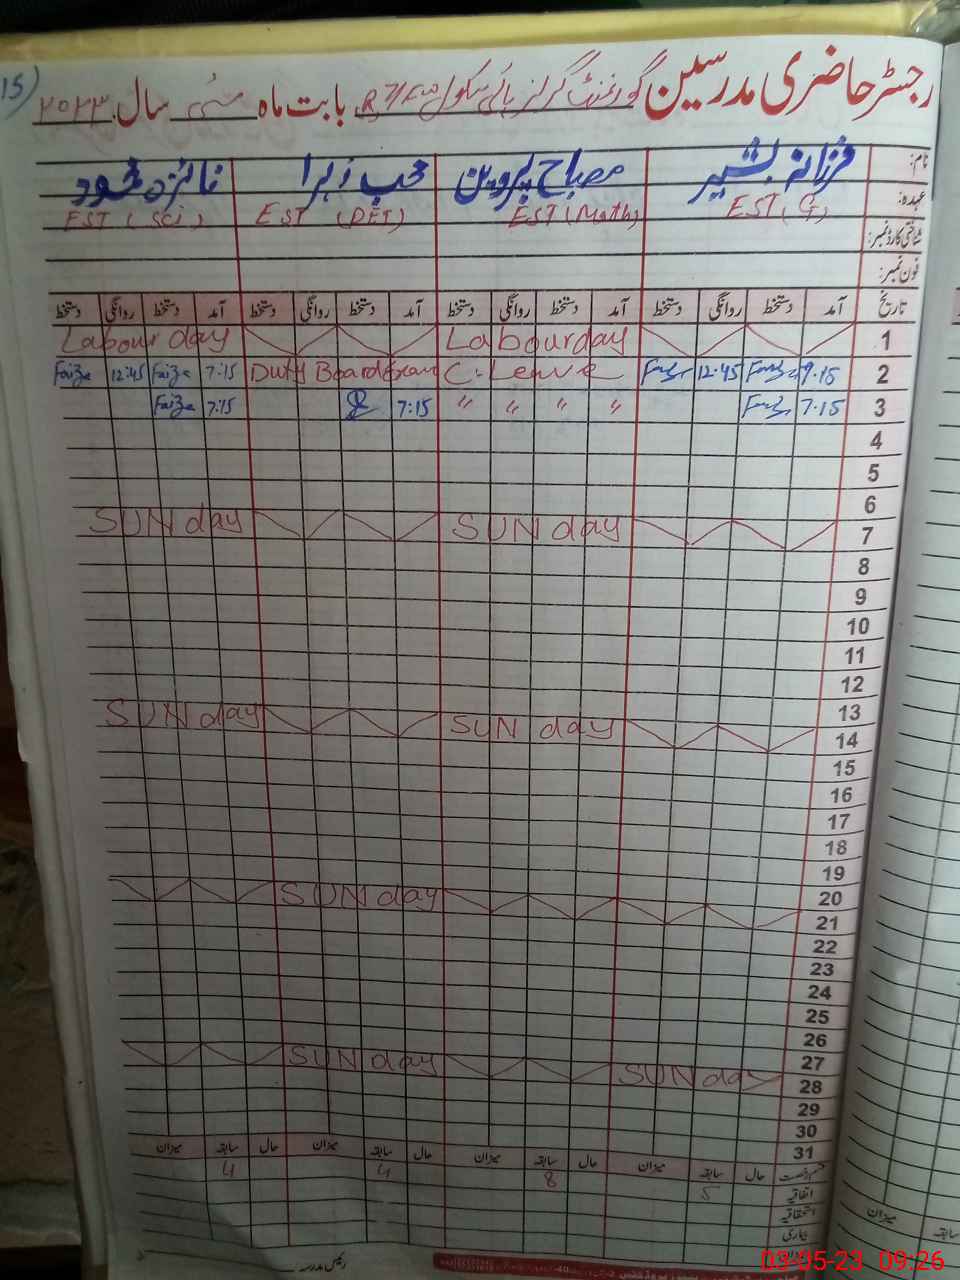 15)
رجسٹر حاضری مدرسین گورنمنٹ گرلز ہائی سکول بابت ماہ مئی سال ۲۰۲۳
نام: فرزانہ بشیر مصباح پروین محب زہرا فائزہ محمود
عہدہ: EST (G) EST (Math) EST (DEI) EST (SCi)
شناختی کارڈ نمبر:
فون نمبر:
تاریخ آمد دستخط روانگی دستخط آمد دستخط روانگی دستخط آمد دستخط روانگی دستخط آمد دستخط روانگی دستخط
Labour day Labour day 1
Faiza 12:45 Faiza 7:15 Duty Board Exam C. Leave 12.45 7.15 2
Faiza 7:15 7:15 " " " " 7.15 3
4
5
6
SUN day SUN day 7
8
9
10
11
12
13
SUN day SUN day 14
15
16
17
18
19
20
SUN day 21
22
23
24
25
26
27
SUN day SUN day 28
29
30
31
حال سابقہ میزان حال سابقہ میزان حال سابقہ میزان حال سابقہ میزان
اتفاقیہ 5 8 4 4
استحقاقیہ
بیماری
میزان
سابقہ
رئیس مدرسہ
03-05-23 09:26